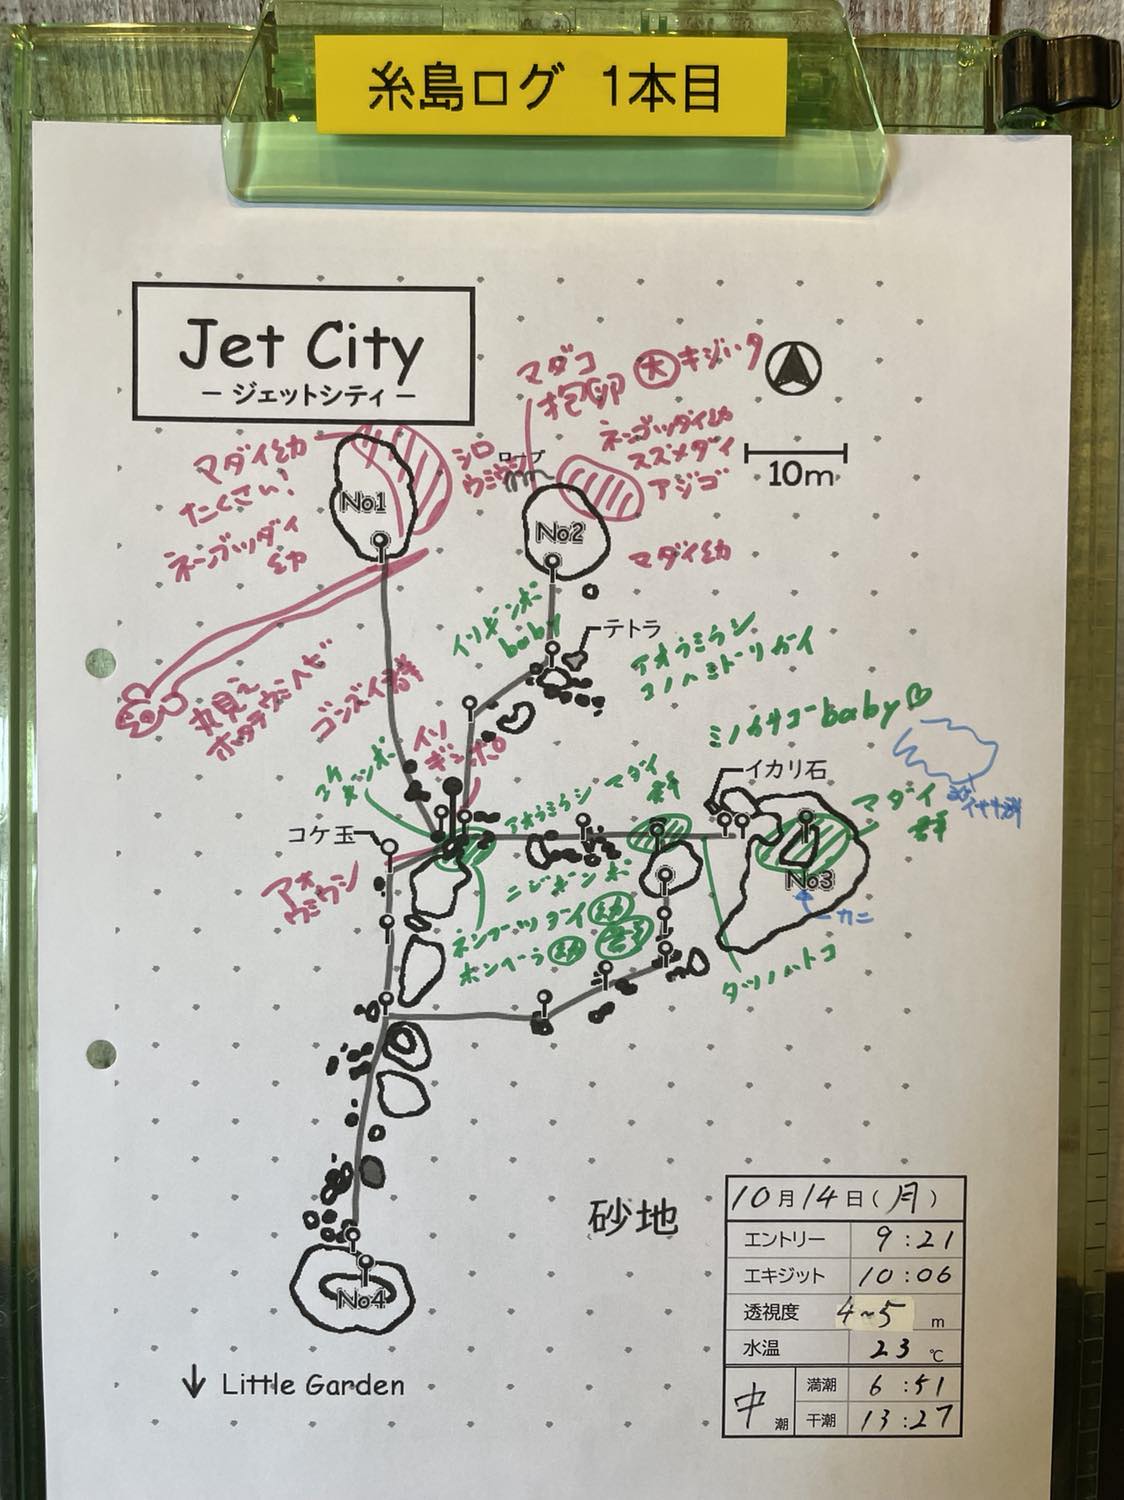 糸島ログ 1本目
Jet City
－ジェットシティ－
マダコ
抱卵
大 キジハタ
10m
マダイ幼
たくさん!
ネンブツダイ
幼
シロ
ウミウシ
ロープ
ネンブツダイ幼
スズメダイ
アジゴ
No1
No2
マダイ幼
イソギンポ
baby
テトラ
アオウミウシ
コノハミドリガイ
丸見え
ホタテウミヘビ
ゴンズイ群
イソ
ギンポ
コケギンポ
ミノカサゴーbaby♡
イカリ石
イサキ群
マダイ
群
アオウミウシ
マダイ
群
コケ玉
アオ
ウミウシ
ニジギンポ
No3
カニ
ネンブツダイ 幼
ホンベラ 幼
タツノハトコ
砂地
No4
↓ Little Garden
10月14日(月)
エントリー 9:21
エキジット 10:06
透視度 4~5 m
水温 23 ℃
中潮
満潮 6:51
干潮 13:27